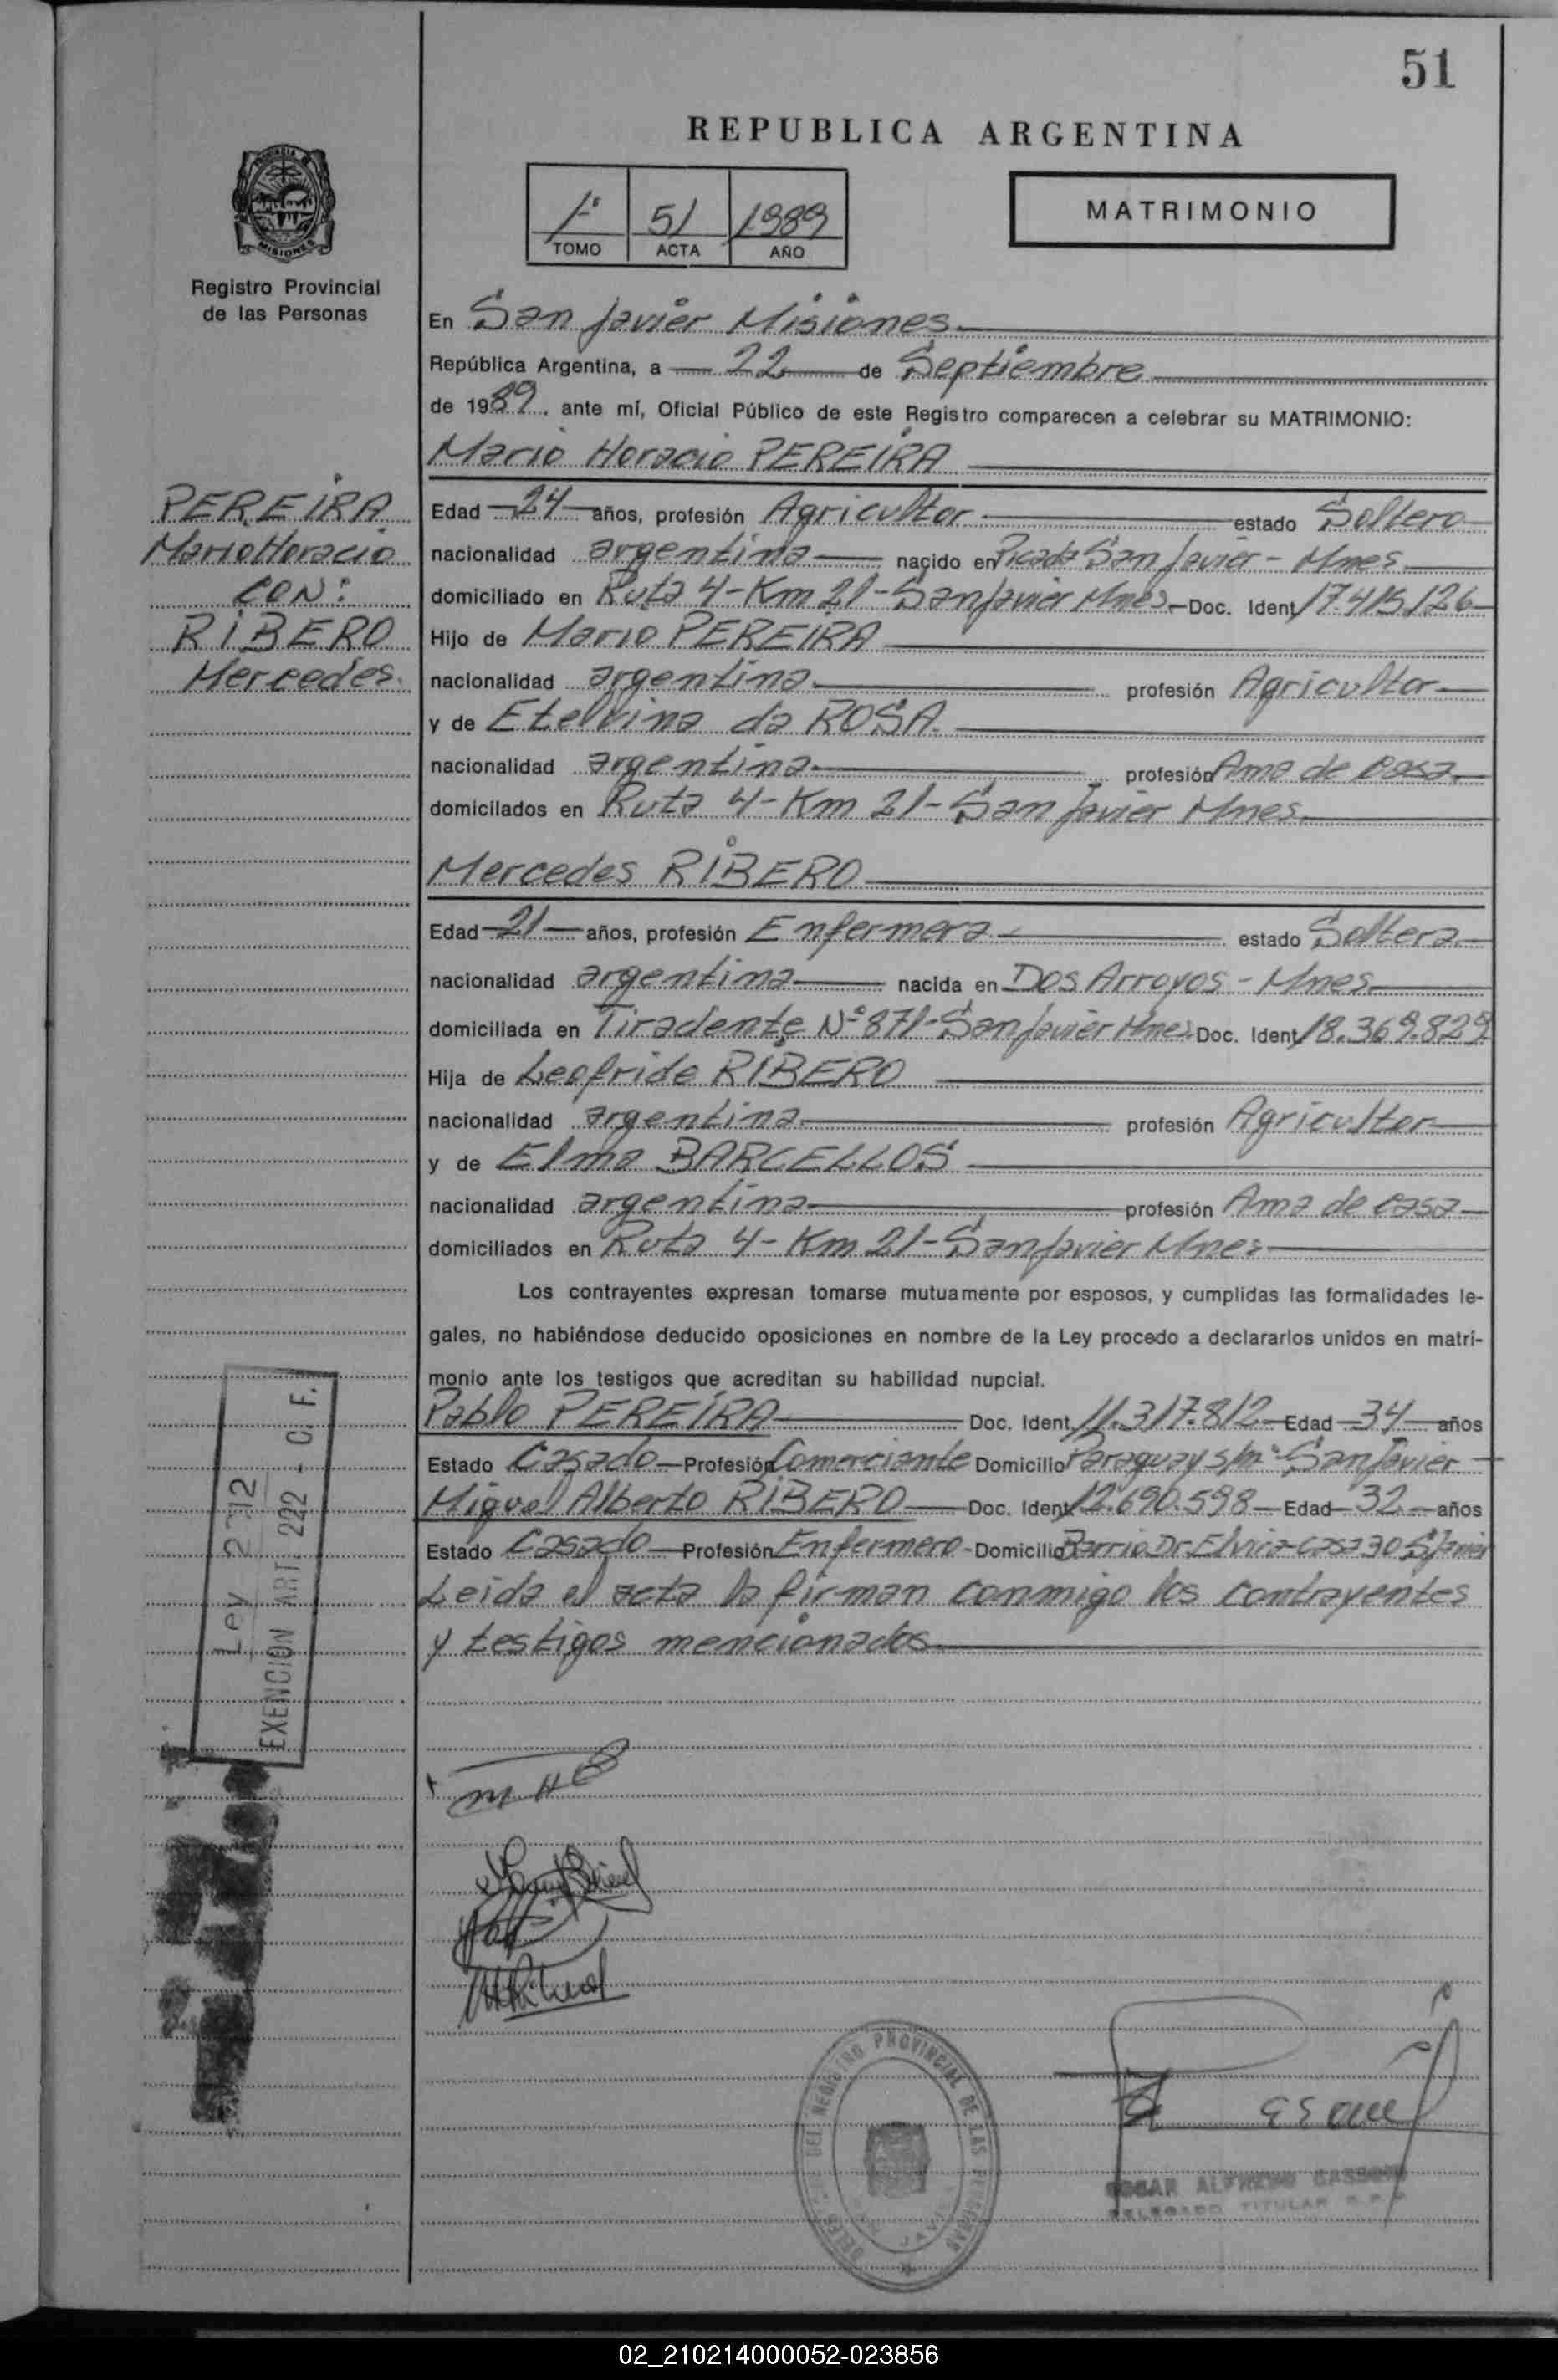 51
REPUBLICA ARGENTINA
1º 51 1989
TOMO ACTA AÑO
MATRIMONIO
PROVINCIA DE
MISIONES
Registro Provincial
de las Personas
En San Javier Misiones
República Argentina, a 22 de Septiembre
de 1989, ante mí, Oficial Público de este Registro comparecen a celebrar su MATRIMONIO:
Mario Horacio PEREIRA
PEREIRA
Mario Horacio
CON:
RIBERO
Mercedes.
Edad 24 años, profesión Agricultor estado Soltero
nacionalidad argentina nacido en Picada San Javier - Mnes
domiciliado en Ruta 4-Km 21-San Javier Mnes Doc. Ident. 17.415.126
Hijo de Mario PEREIRA
nacionalidad argentina profesión Agricultor
y de Etelvina da ROSA
nacionalidad argentina profesión Ama de casa
domicilados en Ruta 4-Km 21-San Javier Mnes
Mercedes RIBERO
Edad 21 años, profesión Enfermera estado Soltera
nacionalidad argentina nacida en Dos Arroyos - Mnes
domiciliada en Tiradente Nº 871-San Javier Mnes Doc. Ident. 18.369.829
Hija de Leofride RIBERO
nacionalidad argentina profesión Agricultor
y de Elma BARCELLOS
nacionalidad argentina profesión Ama de casa
domiciliados en Ruta 4-Km 21-San Javier Mnes
Los contrayentes expresan tomarse mutuamente por esposos, y cumplidas las formalidades le-
gales, no habiéndose deducido oposiciones en nombre de la Ley procedo a declararlos unidos en matri-
monio ante los testigos que acreditan su habilidad nupcial.
Pablo PEREIRA Doc. Ident. 11.317.812 Edad 34 años
Estado Casado Profesión Comerciante Domicilio Paraguay s/nº San Javier
Miguel Alberto RIBERO Doc. Ident. 12.690.598 Edad 32 años
Estado Casado Profesión Enfermero - Domicilio Barrio Dr. Elvira casa 30 S/Javier
Leida el acta la firman conmigo los contrayentes
y testigos mencionados
Ley 2712
EXENCION ART. 222 - C. F.
DEL REGISTRO PROVINCIAL DE LAS PERSONAS
JAVIER
ALFREDO
DELEGADO TITULAR R.P.P
02_210214000052-023856